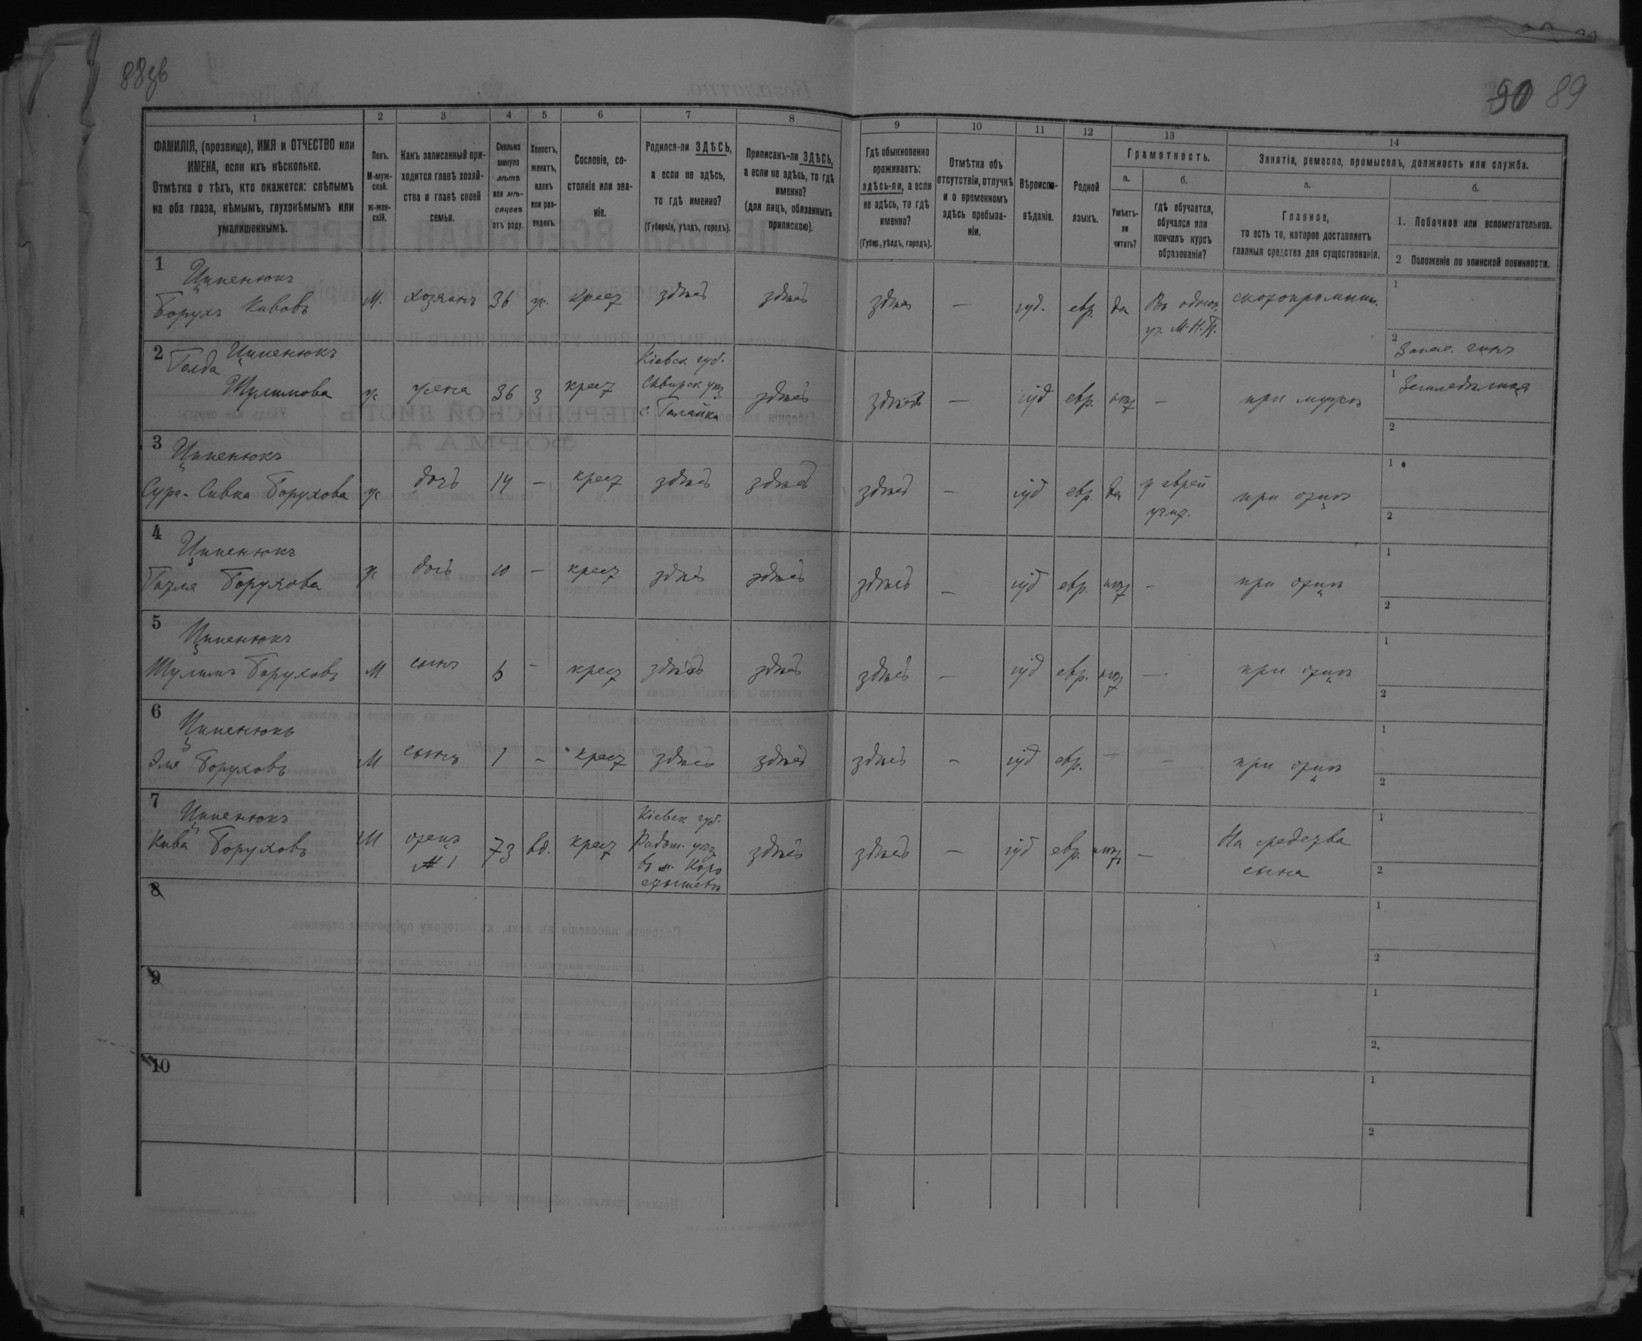 88зв
90 89
1 2 3 4 5 6 7 8 9 10 11 12 13 14
ФАМИЛІЯ, (прозвище), ИМЯ и ОТЧЕСТВО или
ИМЕНА, если ихъ нѣсколько.
Отмѣтка о тѣхъ, кто окажется: слѣпымъ
на оба глаза, нѣмымъ, глухонѣмымъ или
умалишеннымъ.
Полъ.
М-муж-
ской.
ж-жен-
скій.
Какъ записанный при-
ходится главѣ хозяй-
ства и главѣ своей
семьи.
Сколько
минуло
лѣтъ
или мѣ-
сяцевъ
отъ роду.
Холостъ,
женатъ,
вдовъ
или раз-
веденъ.
Сословіе, со-
стояніе или зва-
ніе.
Родился-ли ЗДѢСЬ,
а если не здѣсь,
то гдѣ именно?
(Губернія, уѣздъ, городъ).
Приписанъ-ли ЗДѢСЬ,
а если не здѣсь, то гдѣ
именно?
(для лицъ, обязанныхъ
припискою).
Гдѣ обыкновенно
проживаетъ:
здѣсь-ли, а если
не здѣсь, то гдѣ
именно?
(Губер., уѣздъ, городъ).
Отмѣтка объ
отсутствіи, отлучкѣ
и о временномъ
здѣсь пребыва-
ніи.
Вѣроиспо-
вѣданіе.
Родной
языкъ.
Грамотность.
а.
Умѣетъ-
ли
читать?
б.
гдѣ обучается,
обучался или
кончилъ курсъ
образованія?
Занятіе, ремесло, промыселъ, должность или служба.
а.
Главное,
то есть то, которое доставляетъ
главныя средства для существованія.
б.
1. Побочное или вспомогательное.
2 Положеніе по воинской повинности.
1 Ципенюкъ
Борухъ Кивовъ М. хозяинъ 36 ж. крест здѣсь здѣсь здѣсь — іуд. евр. да Въ однок. уч. М.Н.П. скотопромыш. 1
2
2 Ципенюкъ
Голда Шулимова ж жена 36 з крест Кіевск губ. Сквирск уѣз с. Галайка здѣсь здѣсь — іуд евр. нѣт — при мужѣ 1 Земледѣлица
2
3 Ципенюкъ
Сура-Сивка Борухова ж дочь 14 — крест здѣсь здѣсь здѣсь — іуд евр да у еврей учит. при отцѣ 1
2
4 Ципенюкъ
Борухова ж дочь 10 — крест здѣсь здѣсь здѣсь — іуд евр. нѣт — при отцѣ 1
2
5 Ципенюкъ
Шулимъ Боруховъ М сынъ — крест здѣсь здѣсь здѣсь — іуд евр. нѣт — при отцѣ 1
2
6 Ципенюкъ
Эля Боруховъ М сынъ 1 — крест здѣсь здѣсь здѣсь — іуд евр. — — при отцѣ 1
2
7 Ципенюкъ
Кива Боруховъ М отецъ #1 73 вд. крест Кіевск губ. Радом. уѣз въ м. Коро стышевѣ здѣсь здѣсь — іуд евр. нѣт — На средства сына 1
2
8 1
2
9 1
2.
10 1
2